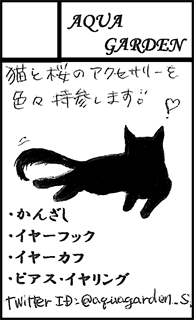 AQUA
GARDEN
猫と桜のアクセサリーを
色々持参します♡
・かんざし
・イヤーフック
・イヤーカフ
・ピアス・イヤリング
twitter ID:@aquagarden_s